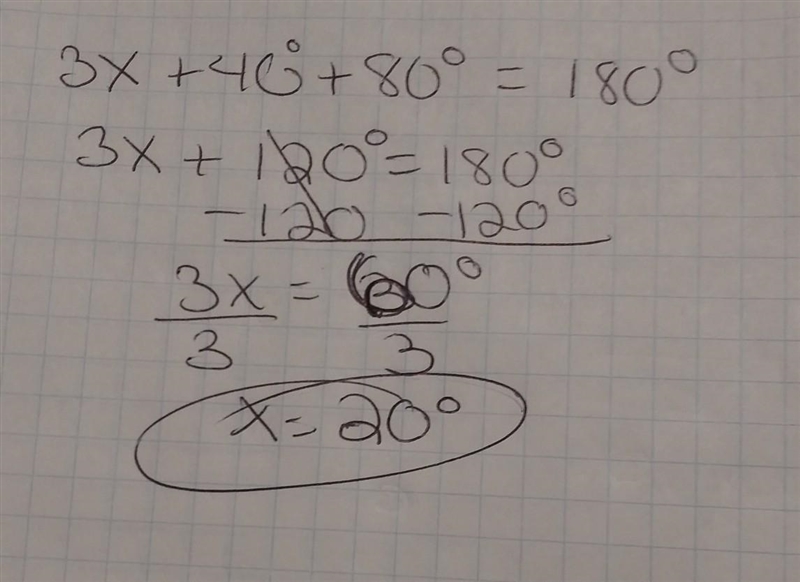 3x + 40° + 80° = 180°
3x + 120° = 180°
-120 -120°
3x = 60°
3 3
x = 20°